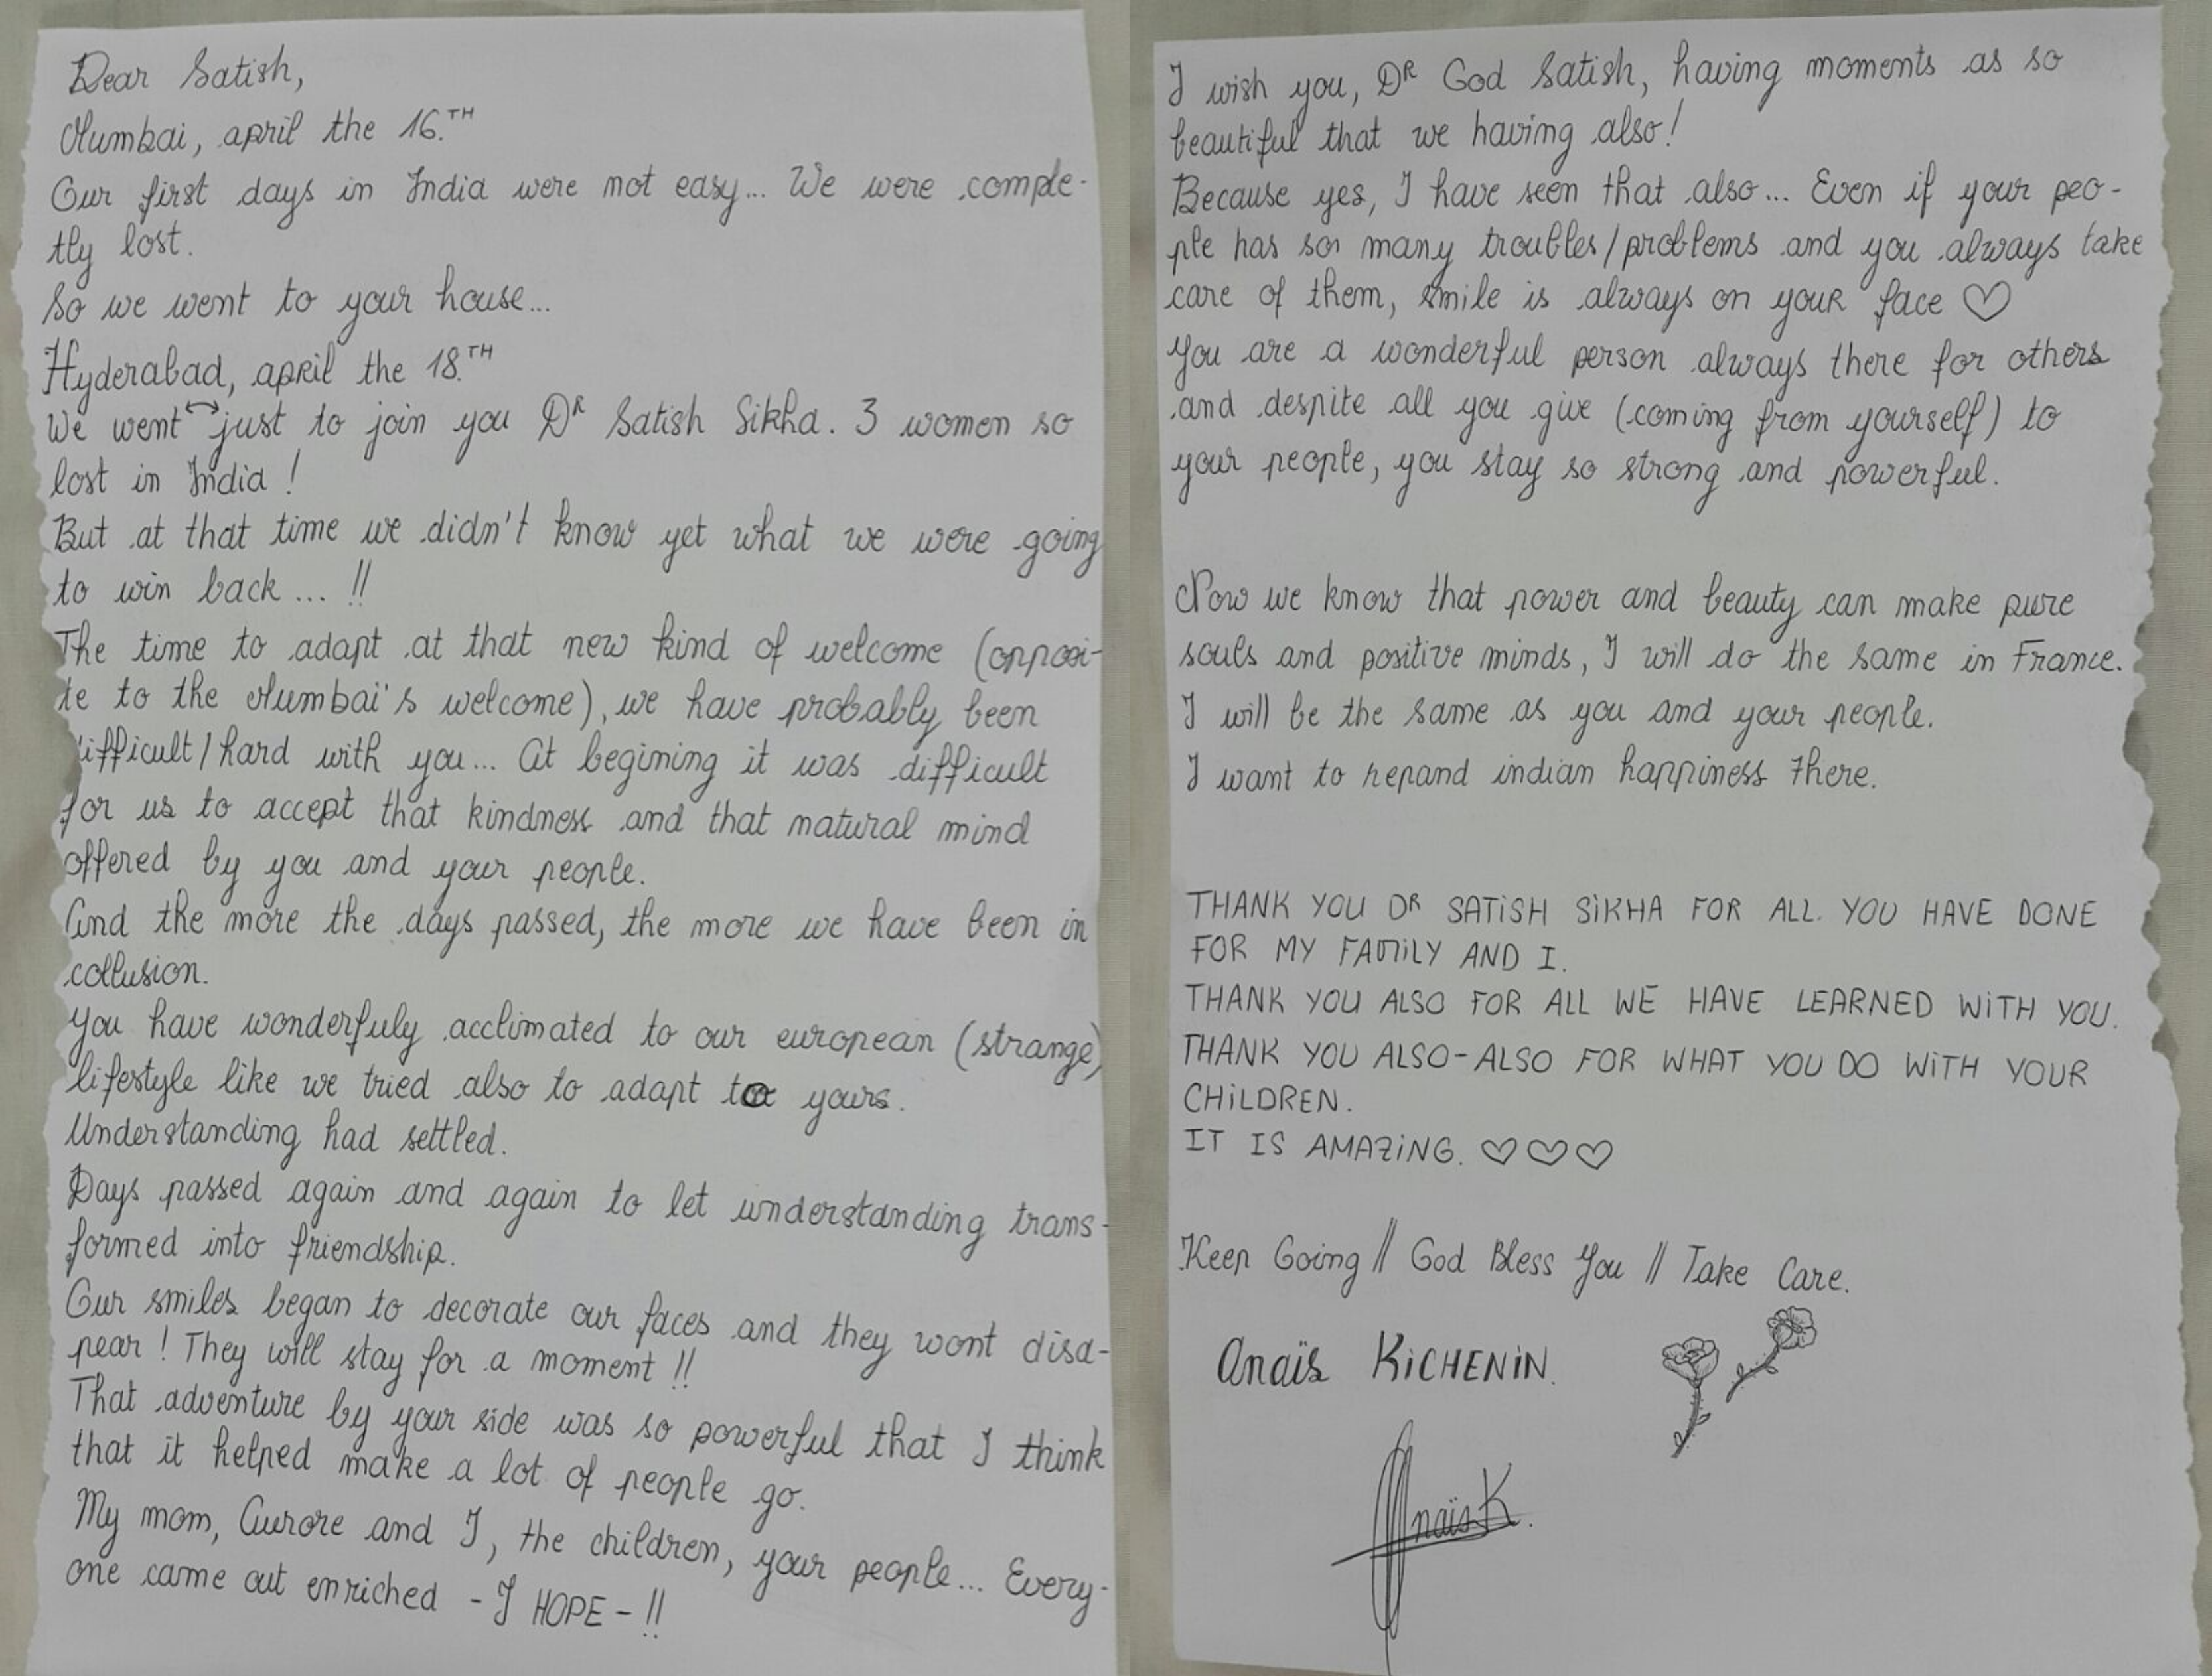 Dear Satish,
Mumbai, april the 16.TH
Our first days in India were not easy... We were comple-
tly lost.
So we went to your house...
Hyderabad, april the 18.TH
We went just to join you DR Satish Sikha. 3 women so
lost in India !
But at that time we didn't know yet what we were going
to win back... !!
The time to adapt at that new kind of welcome (opposi-
te to the Mumbai's welcome), we have probably been
difficult/hard with you... At begining it was difficult
for us to accept that kindness and that natural mind
offered by you and your people.
And the more the days passed, the more we have been in
collusion.
You have wonderfuly acclimated to our european (strange)
lifestyle like we tried also to adapt to yours.
Understanding had settled.
Days passed again and again to let understanding trans-
formed into friendship.
Our smiles began to decorate our faces and they wont disa-
pear ! They will stay for a moment !!
That adventure by your side was so powerful that I think
that it helped make a lot of people go.
My mom, Aurore and I, the children, your people... Every-
one came out enriched - I HOPE - !!
I wish you, DR God Satish, having moments as so
beautiful that we having also!
Because yes, I have seen that also... Even if your peo-
ple has so many troubles/problems and you always take
care of them, smile is always on youR face ♡
You are a wonderful person always there for others
and despite all you give (coming from yourself) to
your people, you stay so strong and powerful.
Now we know that power and beauty can make pure
souls and positive minds, I will do the same in France.
I will be the same as you and your people.
I want to repand indian happiness there.
THANK YOU DR SATiSH SiKHA FOR ALL. YOU HAVE DONE
FOR MY FAMiLY AND I.
THANK YOU ALSO FOR ALL WE HAVE LEARNED WiTH YOU.
THANK YOU ALSO-ALSO FOR WHAT YOU DO WiTH YOUR
CHiLDREN.
IT IS AMAZiNG. ♡♡♡
Keep Going // God Bless You // Take Care.
Anaïs KiCHENiN.
Anaïs K.